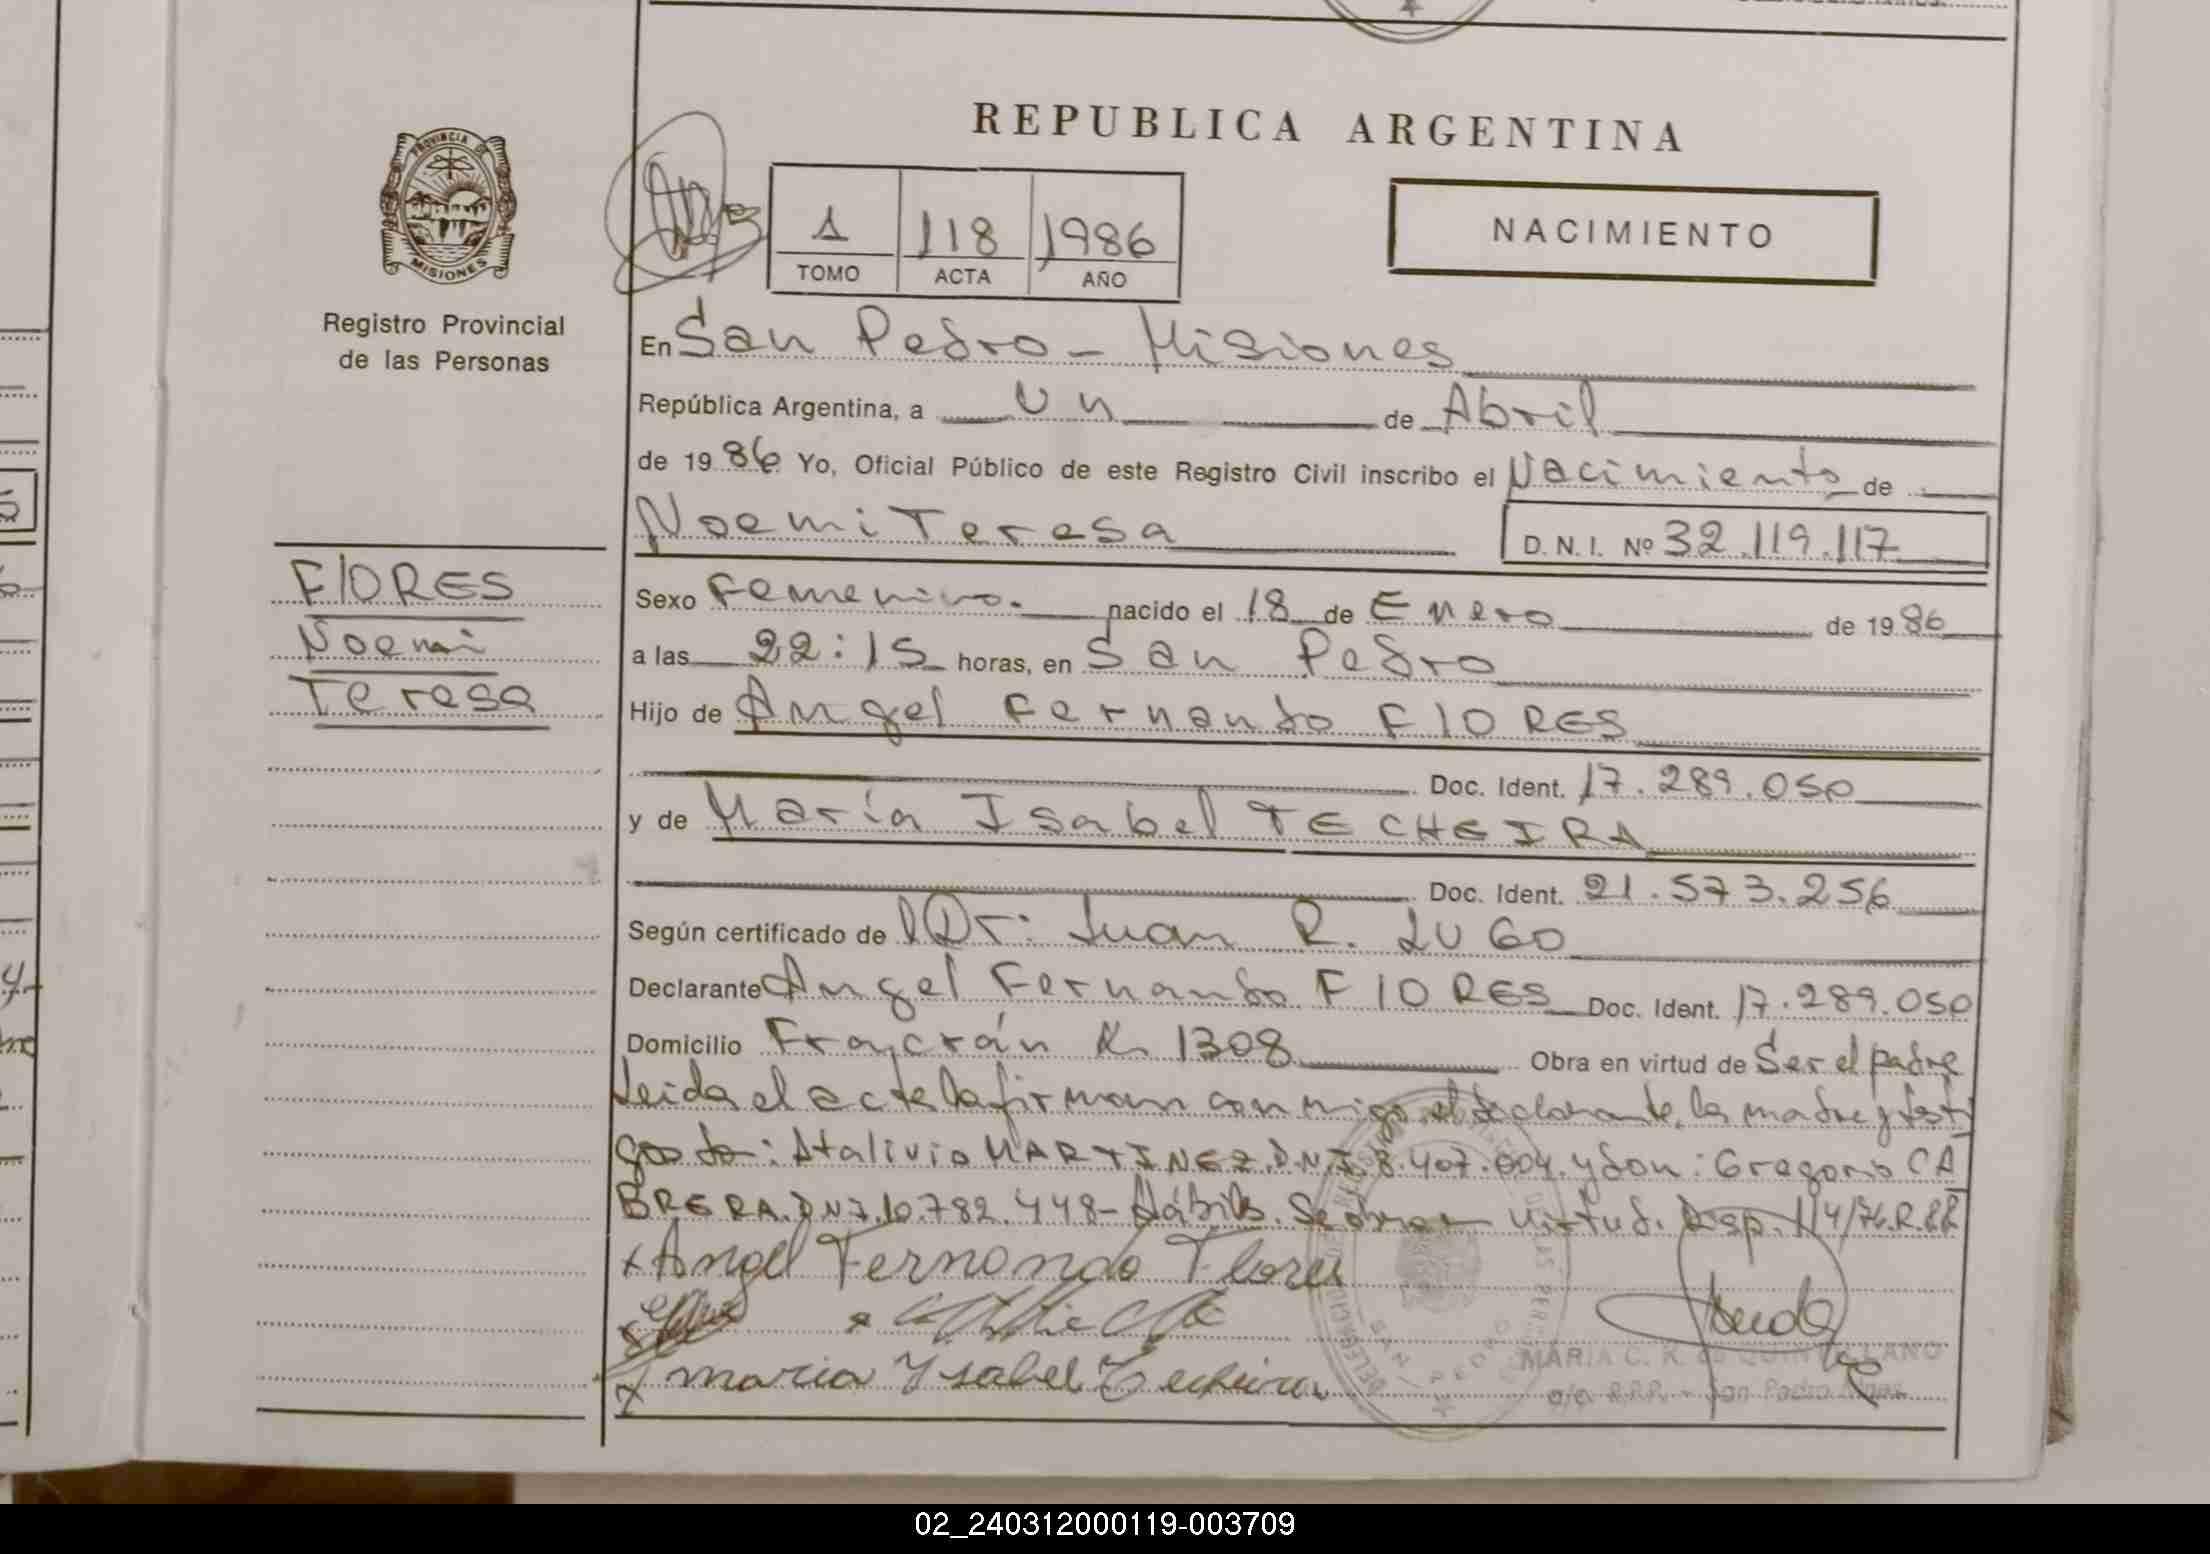 REPUBLICA ARGENTINA
PROVINCIA DE
MISIONES
Registro Provincial
de las Personas
1 118 1986
TOMO ACTA AÑO
NACIMIENTO
En San Pedro - Misiones
República Argentina, a Un de Abril
de 1986 Yo, Oficial Público de este Registro Civil inscribo el Nacimiento de
Noemi Teresa D. N. I. Nº 32.119.117
FlORES
Noemi
Teresa
Sexo Femenino. nacido el 18 de Enero de 1986
a las 22:15 horas, en San Pedro
Hijo de Angel Fernando FlORES
Doc. Ident. 17.289.050
y de María Isabel TECHEIRA
Doc. Ident. 21.573.256
Según certificado de l Dr: Juan R. LUGO
Declarante Angel Fernando FlORES Doc. Ident. 17.289.050
Domicilio Fracrán K 1308 Obra en virtud de Ser el padre
Leida el acta la firman conmigo el declarante, la madre y testi
gos: Atalivio MARTINEZ. D.N.I. 8.407.004. y don: Gregorio CA
BRERA. DNI. 10.782.448- Hábiles. Se obra en virtud. Disp. 114/76.R.
x Angel Fernando Flores
x maria Ysabel Techeira
SAN PEDRO
MARIA C. K. de QUINTILLANO
a/c R.P.P. - San Pedro Mnes.
02_240312000119-003709